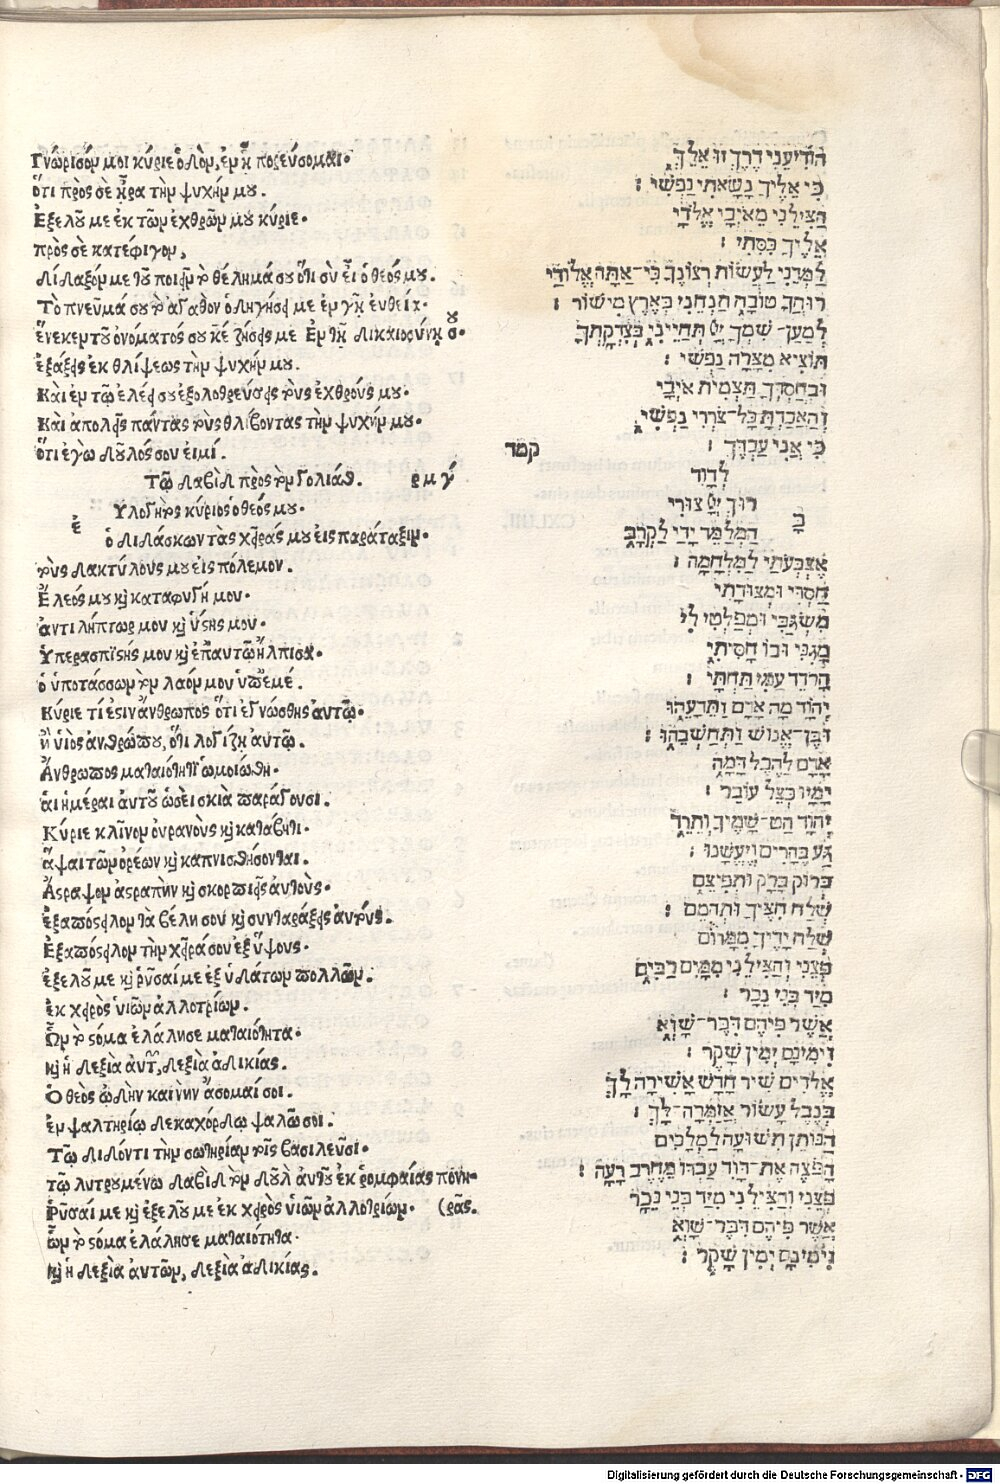 Γνώρισόν μοι κύριε ὁδὸν, ἐν ᾗ πορεύσομαι·
ὅτι πρὸς σὲ ἦρα τὴν ψυχήν μου.
Ἐξελοῦ με ἐκ τῶν ἐχθρῶν μου κύριε·
πρὸς σὲ κατέφυγον,
Δίδαξόν με τοῦ ποιεῖν τὸ θέλημά σου ὅτι σὺ εἶ ὁ θεός μου.
Τὸ πνεῦμά σου τὸ ἀγαθὸν ὁδηγήσει με ἐν γῇ εὐθείᾳ·
ἕνεκεν τοῦ ὀνόματός σου κύριε ζήσεις με Ἐν τῇ δικαιοσύνῃ σου·
ἐξάξεις ἐκ θλίψεως τὴν ψυχήν μου.
Καὶ ἐν τῷ ἐλέει σου ἐξολοθρεύσεις τοὺς ἐχθρούς μου·
Καὶ ἀπολεῖς πάντας τοὺς θλίβοντας τὴν ψυχήν μου·
ὅτι ἐγὼ δοῦλός σου εἰμί.
Τῷ δαβὶδ πρὸς τὸν γολιάθ. ρμγ΄
Υλογητὸς κύριος ὁ θεός μου·
ἐ
ὁ διδάσκων τὰς χεῖράς μου εἰς παράταξιν·
τοὺς δακτύλους μου εἰς πόλεμον.
Ἔλεός μου καὶ καταφυγή μου·
ἀντιλήπτωρ μου καὶ ῥύστης μου·
Ὑπερασπιστής μου καὶ ἐπ' αὐτῷ ἤλπισα·
ὁ ὑποτάσσων τὸν λαόν μου ὑπ' ἐμέ.
Κύριε τί ἐστιν ἄνθρωπος ὅτι ἐγνώσθης αὐτῷ·
ἢ υἱὸς ἀνθρώπου, ὅτι λογίζῃ αὐτῷ.
Ἄνθρωπος ματαιότητι ὡμοιώθη·
αἱ ἡμέραι αὐτοῦ ὡσεὶ σκιὰ παράγουσι.
Κύριε κλῖνον οὐρανοὺς καὶ κατάβηθι·
ἅψαι τῶν ὀρέων καὶ καπνισθήσονται.
Ἄστραψον ἀστραπὴν καὶ σκορπιεῖς αὐτούς·
ἐξαπόστειλον τὰ βέλη σου καὶ συνταράξεις αὐτούς.
Ἐξαπόστειλον τὴν χεῖρά σου ἐξ ὕψους·
ἐξελοῦ με καὶ ῥῦσαί με ἐξ ὑδάτων πολλῶν.
ἐκ χειρὸς υἱῶν ἀλλοτρίων.
Ὧν τὸ στόμα ἐλάλησε ματαιότητα·
καὶ ἡ δεξιὰ αὐτῶν, δεξιὰ ἀδικίας.
Ὁ θεὸς ᾠδὴν καινὴν ἄσομαί σοι.
ἐν ψαλτηρίῳ δεκαχόρδῳ ψαλῶ σοι.
Τῷ διδόντι τὴν σωτηρίαν τοῖς βασιλεῦσι·
τῷ λυτρουμένῳ δαβὶδ τὸν δοῦλον αὐτοῦ ἐκ ῥομφαίας πονη-
Ῥῦσαί με καὶ ἐξελοῦ με ἐκ χειρὸς υἱῶν ἀλλοτρίων· (ρᾶς.
ὧν τὸ στόμα ἐλάλησε ματαιότητα·
καὶ ἡ δεξιὰ αὐτῶν, δεξιὰ ἀδικίας.
הודיעני דרך זו אלך
כי אליך נשאתי נפשי :
הצילני מאיבי
אליך כסתי :
למדני לעשות רצונך כי־אתה אלודי
רוחך טובה תנחני בארץ מישור :
למען־שמך תחייני בצדקתך
תוציא מצרה נפשי :
ובחסדך תצמית איבי
והאבדת כל־צררי נפשי
כי אני עבדך : קמד
לדוד
רוך צורי
ב
המלמד ידי לקרב
אצבעתי למלחמה :
חסדי ומצודתי
משגבי ומפלטי לי
מגני ובו חסיתי
הרדד עמי תחתי :
יהוד מה אדם ותדעהו
ובן־אנוש ותחשבהו :
אדם להבל דמה
ימיו כצל עובר :
יהוד הט־שמיך ותרד
גע בהרים ויעשנו :
ברוק ברק ותפיצם
שלח חציך ותהמם :
שלח ידיך ממרום
פצני והצילני ממים רבים
מיד בני נכר :
אשר פיהם דבר־שוא
וימינם ימין שקר :
אלדים שיר חדש אשירה לך
בנבל עשור אזמרה־לך :
הנותן תשועה למלכים
הפצה את־דוד עבדו מחרב רעה :
פצני והצילני מיד בני נכר
אשר פיהם דבר־שוא
וימינם ימין שקר :
Digitalisierung gefördert durch die Deutsche Forschungsgemeinschaft - DFG